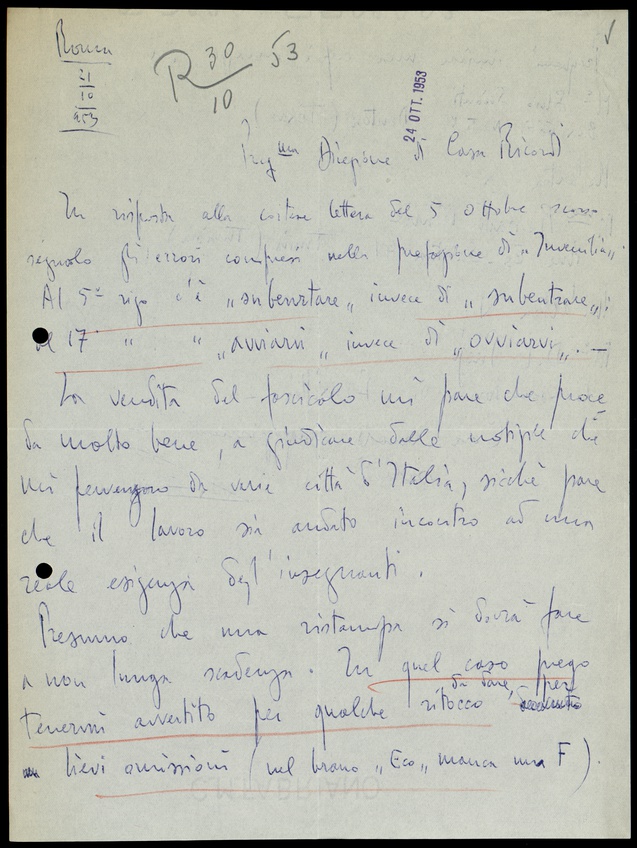 Roma
21
10
953
R 30 53
10
24 OTT. 1953
Preg.ma Direzione di Casa Ricordi
In risposta alla cortese lettera del 5 ottobre scorso
segnalo gli errori compresi nella prefazione di "Inventiva".
Al 5° rigo c'è "subenrtare" invece di "subentrare";
al 17° " " "avviarvi" invece di "ovviarvi". —
La vendita del fascicolo mi pare che proce=
da molto bene, a giudicare dalle notizie che
mi pervengono da varie città d'Italia, sicchè pare
che il lavoro sia andato incontro ad una
reale esigenza degl'insegnanti.
Presumo che una ristampa si dovrà fare
a non lunga scadenza. In quel caso prego
tenermi avvertito per qualche ritocco da dare, per
lievi omissioni (nel brano "Eco" manca una F).